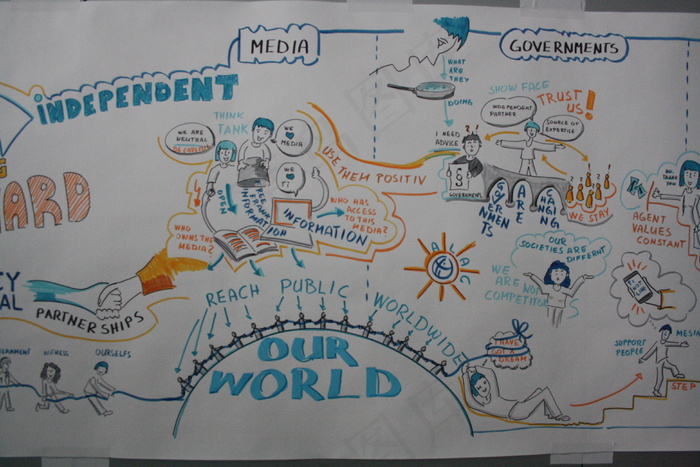 MEDIA
GOVERNMENTS
INDEPENDENT
THINK
TANK
WE ARE
NEUTRAL
WE
MEDIA
WE
TI
OPEN
INFORMATION
INFORMATION
USE THEM POSITIV
WHO HAS
ACCESS TO THIS
MEDIA?
WHO OWNS THE
MEDIA?
ARD
PARTNERSHIPS
WITNESS
OURSELFS
REACH PUBLIC WORLDWIDE
OUR
WORLD
WHAT
ARE
THEY
DOING
I NEED
ADVICE
SHOW FACE
INDEPENDENT
PARTNER
TRUST
US!
SOURCE OF
EXPERTISE
§
GOVERNMENT
GOVERNMENTS
ARE
CHANGING
WE STAY
ALAC
OUR
SOCIETIES ARE
DIFFERENT
WE ARE NOT
COMPETITORS
I HAVE
A
DREAM
NO
THANK
YOU
AGENT
VALUES
CONSTANT
SUPPORT
PEOPLE
STEP